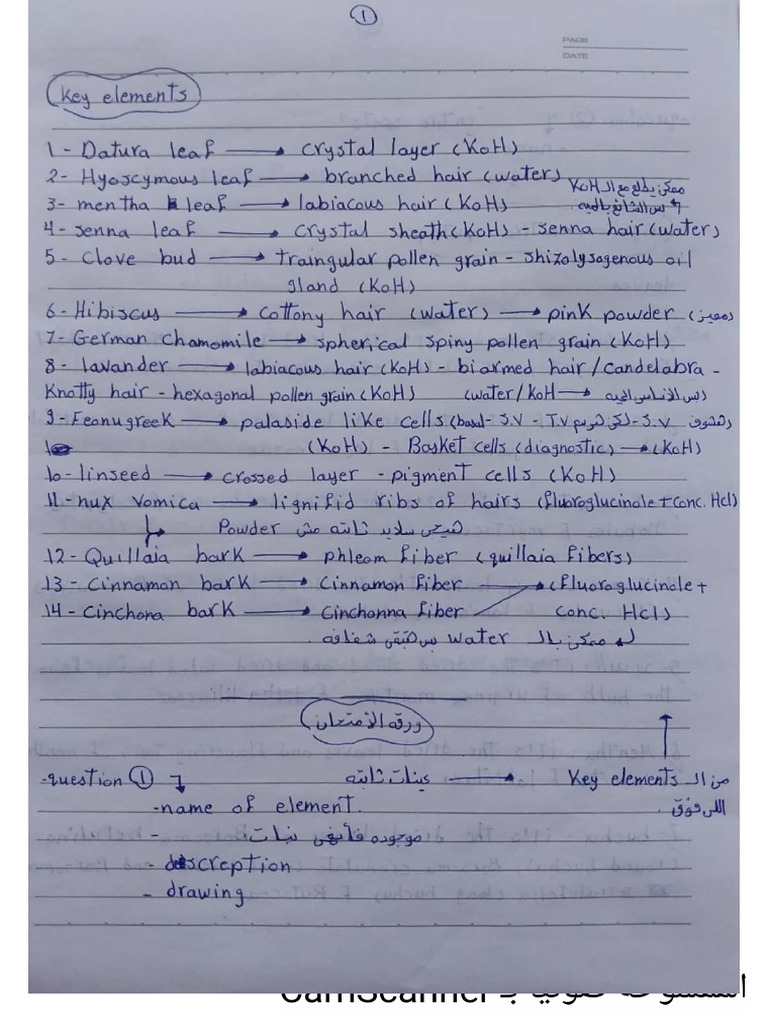 1
PAGE
DATE
Key elements
1- Datura leaf → crystal layer (KoH)
2- Hyoscymous leaf → branched hair (water)
ممكن يطلع مع ال KoH
3- mentha leaf → labiacous hair (KoH)
بس الشائع بالميه.
4- senna leaf → crystal sheath (KoH) - senna hair (water)
5- Clove bud → traingular pollen grain - shizolysogenous oil
gland (KoH)
6- Hibiscus → cottony hair (water) → pink powder (مميز)
7- German chamomile → spherical spiny pollen grain (KoH)
8- lavander → labiacous hair (KoH) - biarmed hair / candelabra -
Knotty hair - hexagonal pollen grain (KoH) (water/KoH → بس الأساس الميه)
9- Feanugreek → palaside like cells (basal - S.V - T.V لكن هنرسم S.V - هنشوف
(KoH) - Basket cells (diagnostic) → (KoH)
10- linseed → crossed layer - pigment cells (KoH)
11- nux vomica → lignifid ribs of hairs (fluoroglucinole + conc. Hcl)
هيجى سلايد ثابته مش Powder
12- Quillaia bark → phleom fiber (quillaia fibers)
13- Cinnamon bark → Cinnamon fiber → (fluoroglucinole +
14- Cinchona bark → Cinchonna fiber conc. Hcl)
ممكن بال water بس هتبقى شفافه.
ورقه الأمتحان
-question 1 عينات ثابته → من ال Key elements
-name of element. اللى فوق.
- موجوده فأنهى نبات
- descreption
- drawing
CamScanner الممسوحة ضوئيا بـ